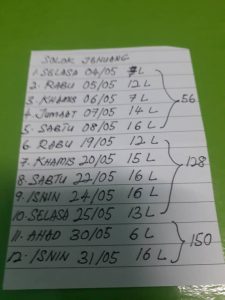 SOLOK JENUANG
1. SELASA 04/05 7 L
2. RABU 05/05 12 L
3. KHAMIS 06/05 7 L 56
4. JUMAAT 07/05 14 L
5. SABTU 08/05 16 L
6. RABU 19/05 12 L
7. KHAMIS 20/05 15 L
8. SABTU 22/05 16 L 128
9. ISNIN 24/05 16 L
10. SELASA 25/05 13 L
11. AHAD 30/05 6 L 150
12. ISNIN 31/05 16 L